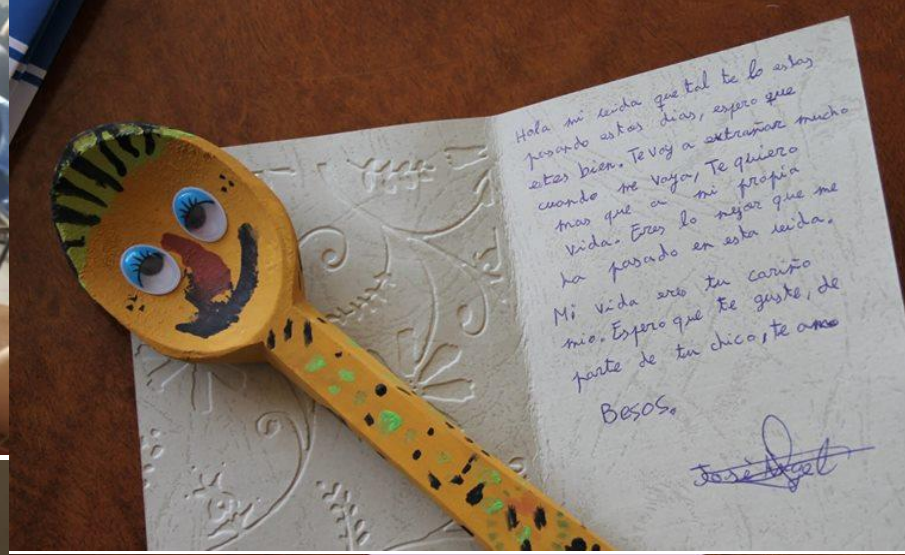 Hola mi veida que tal te lo estas
pasando estos dias, espero que
estes bien. Te voy a extrañar mucho
cuando me vaya, Te quiero
mas que a mi propia
vida. Eres lo mejor que me
ha pasado en esta veida.
Mi vida eres tu cariño
mio. Espero que te guste, de
parte de tu chico, te amo
Besos.
José Angel